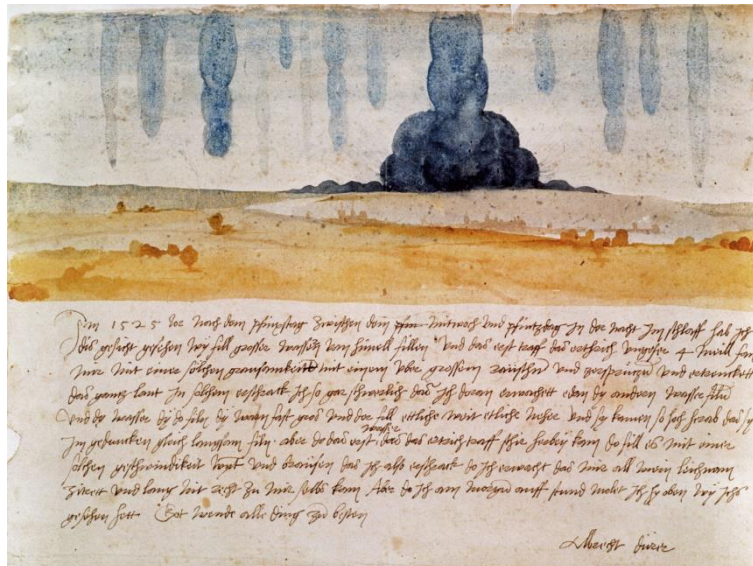 Im 1525 Jor nach dem pfinxstag zwischen dem Mitwoch und pfintzdag in der nacht im schlaff hab ich
dis gesicht gesehen wy fill grosser wassern vom himell fillen Und das erst traff das erthrich ungefer 4 meill fan
mir mit einer solchen grausamkeitt mit einem uber grossem raüschn und zersprützn und ertrenckett
das gantz lant In solchem erschrack ich so gar schwerlich das ich doran erwachett edan dy andern wasser filn
und dy wasser dy do filn dy warn fast gros und der fill ettliche weit etliche neher und sy kamen so hoch herab das sy
im gedancken gleich langsam filn. aber do das erst wasser das das ertrich traff schir herbey kam do fill es mit einer
solchen geschwindikeit wynt und braüsen das ich also erschrack do ich erwacht das mir all mein leichnam
zitrett und lang nit recht zu mir selbs kam Aber do ich am morgn auff stund molet ich hy oben wy ichs
gesehen hett Got wende alle ding zu besten
Albrecht dürer